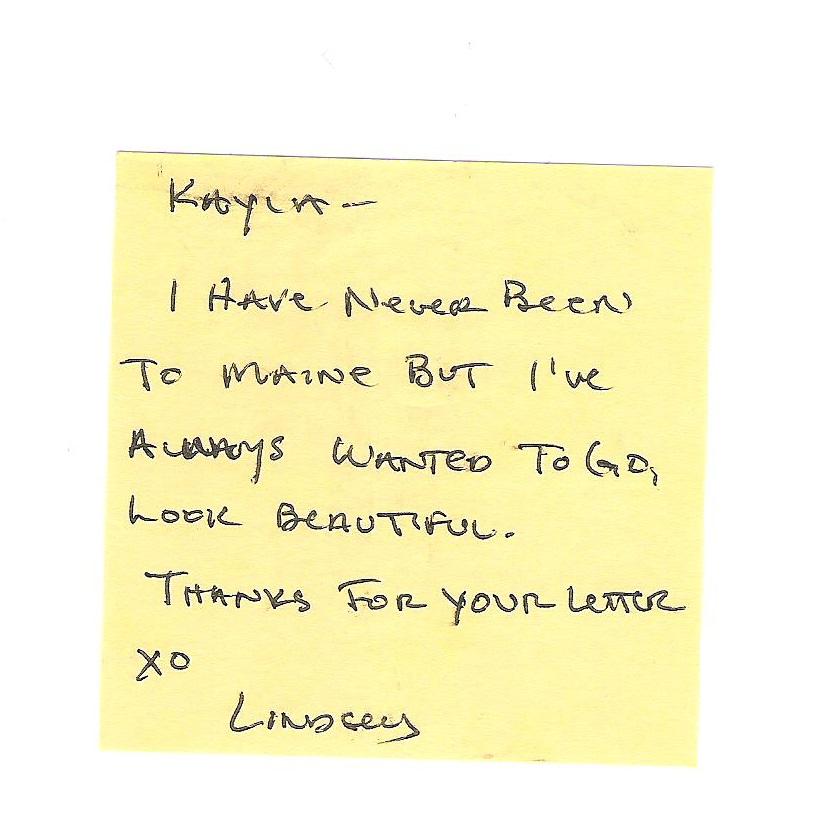 KAYLA —
I HAVE NEVER BEEN
TO MAINE BUT I'VE
ALWAYS WANTED TO GO,
LOOK BEAUTIFUL.
THANKS FOR YOUR LETTER
XO
LINDSEY